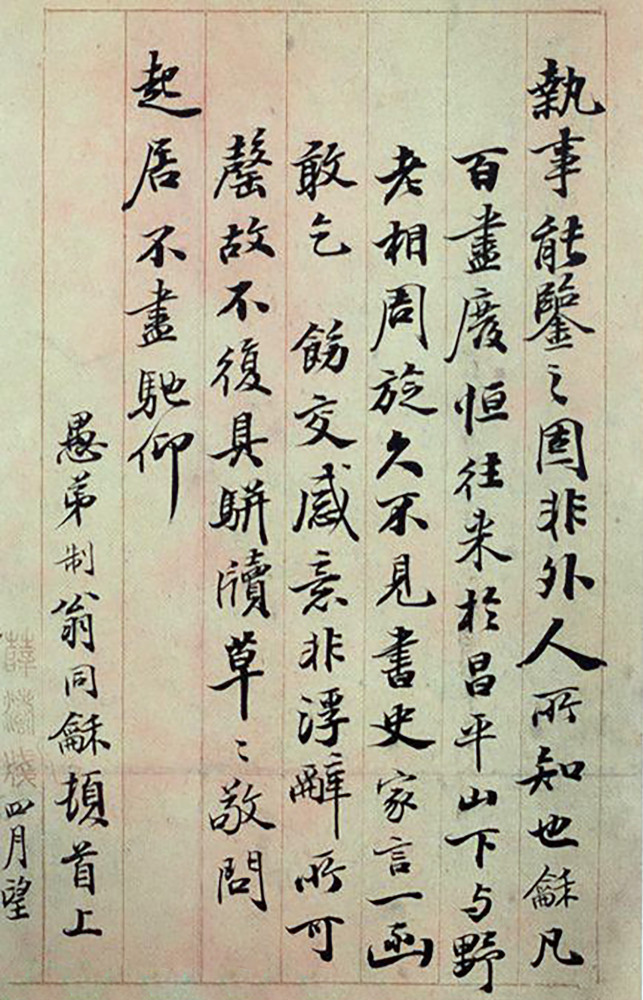 執事能鑒之固非外人所知也龢凡
百盡廢恒往来於昌平山下与野
老相周旋久不見書史家言一函
敢乞 飭交感意非浮辭所可
罄故不復具駢牘草〻敬問
起居不盡馳仰
愚弟制翁同龢頓首上
四月望